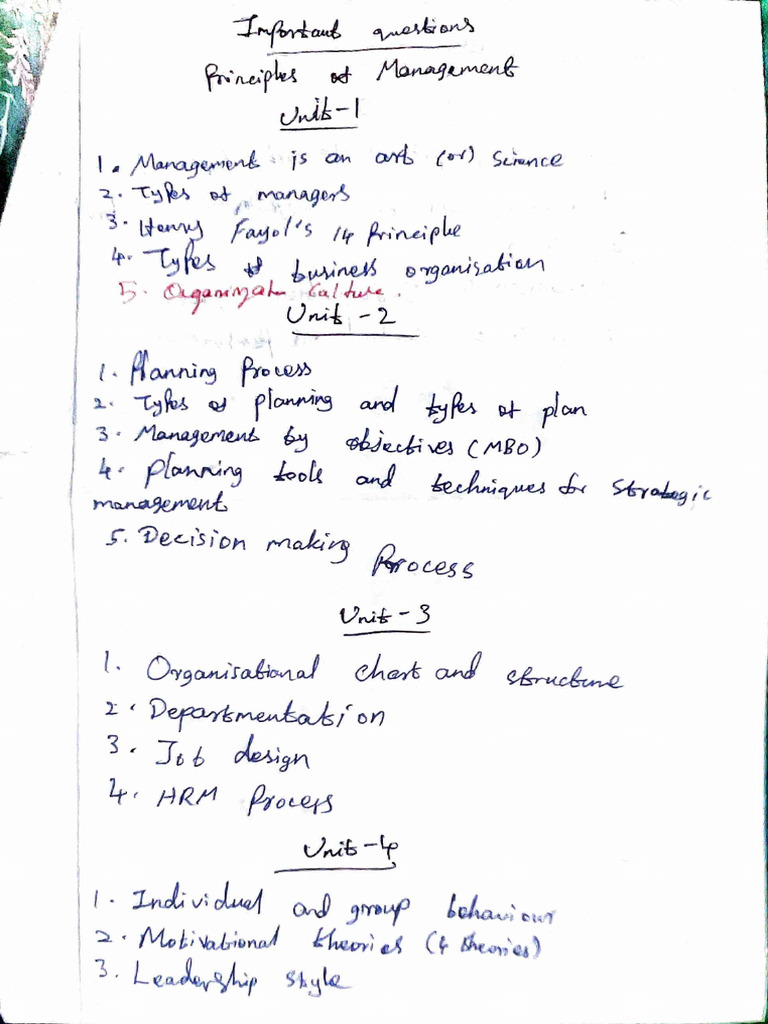 Important questions
Principles of Management
Unit-1
1. Management is an art (or) Science
2. Types of managers
3. Henry Fayol's 14 Principle
4. Types of business organisation
5. Organizati Culture.
Unit - 2
1. Planning Process
2. Types of planning and types of plan
3. Management by objectives (MBO)
4. Planning tools and techniques for Strategic
management
5. Decision making Process
Unit - 3
1. Organisational chart and structure
2. Departmentation
3. Job design
4. HRM Process
Unit-4
1. Individual and group behaviour
2. Motivational theories (4 theories)
3. Leadership style